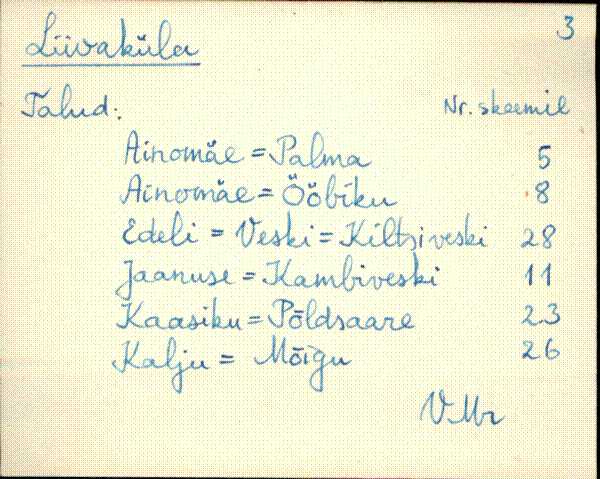 3
Liivaküla
Talud: Nr. skeemil
Ainomäe = Palma 5
Ainomäe = Ööbiku 8
Edeli = Veski = Kiltsiveski 28
Jaanuse = Kambiveski 11
Kaasiku = Põldsaare 23
Kalju = Mõigu 26
VMr